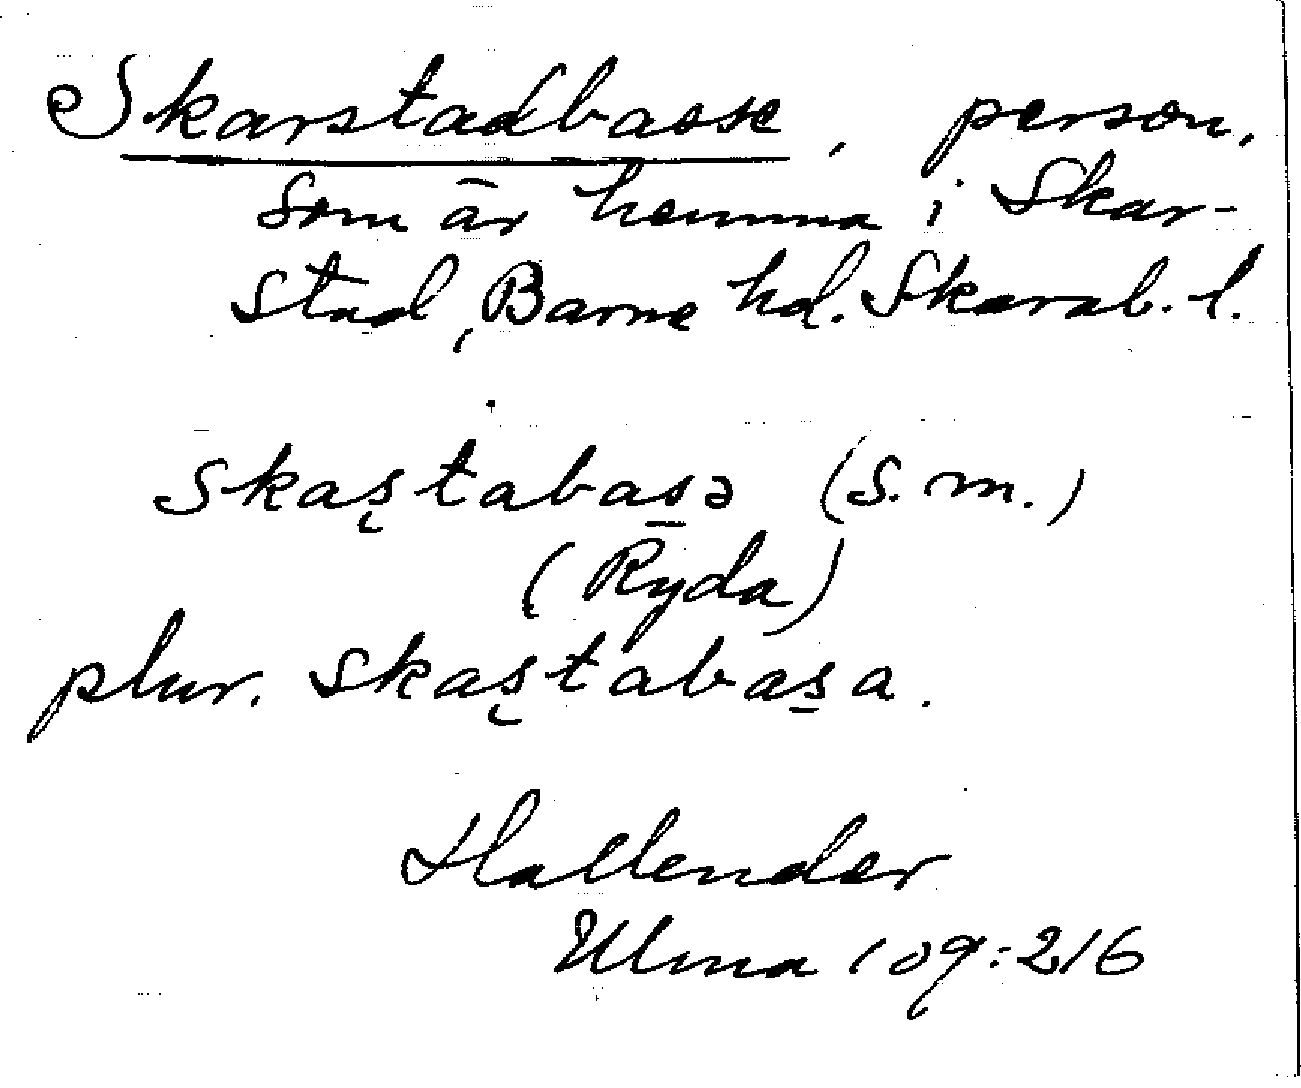 Skarstadbasse, person,
som är hemma i Skar-
stad, Barne hd. Skarab. l.
skaʂtabas̲ə (s. m.)
(Ryda)
plur. skaʂtabas̲a.
Hallender
Ulma 109:216